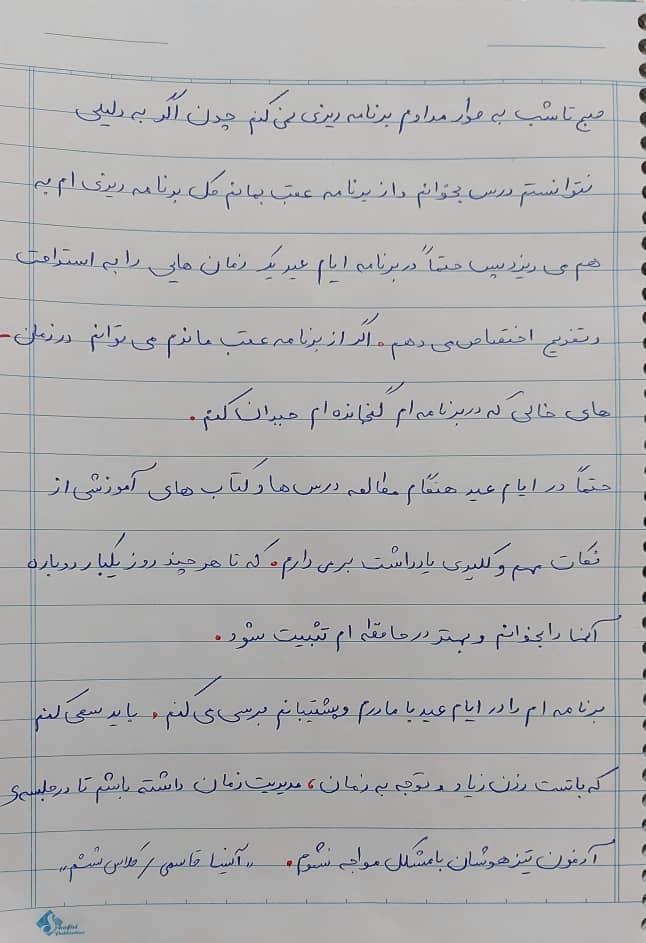 صبح تا شب به طور مداوم برنامه ریزی نمی کنم چون اگر به دلیلی
نتوانستم درس بخوانم و از برنامه عقب بمانم کل برنامه ریزی ام به
هم می ریزد پس حتماً در برنامه ایام عید یک زمان هایی را به استراحت
و تفریح اختصاص می دهم. اگر از برنامه عقب ماندم می توانم در زمان-
های خالی که در برنامه ام گنجانده ام جبران کنم.
حتماً در ایام عید هنگام مطالعه درس ها و کتاب های آموزشی از
نکات مهم و کلیدی یادداشت برمی دارم. که تا هر چند روز یکبار دوباره
آنها را بخوانم و بهتر در حافظه ام تثبیت شود.
برنامه ام را در ایام عید با مادرم و پشتیبانم بررسی می کنم. باید سعی کنم
که با تست زدن زیاد و توجه به زمان، مدیریت زمان داشته باشم تا در جلسه ی
آزمون تیزهوشان با مشکل مواجه نشوم. "آلینا قاسمی / کلاس ششم"